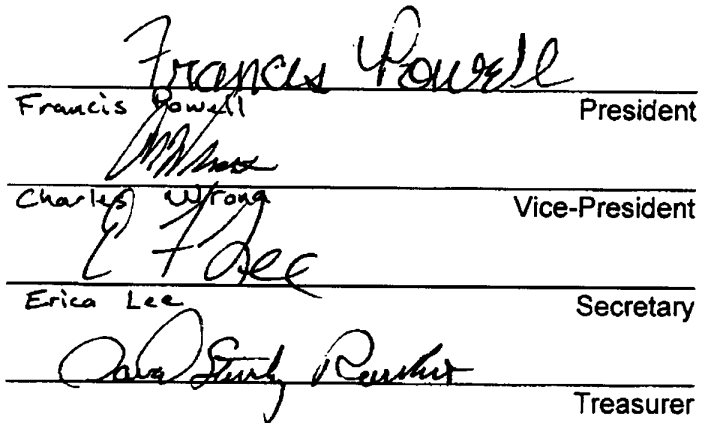 Francis Powell
Francis Powell President
Charles Wrong Vice-President
E F Lee
Erica Lee Secretary
David
Treasurer